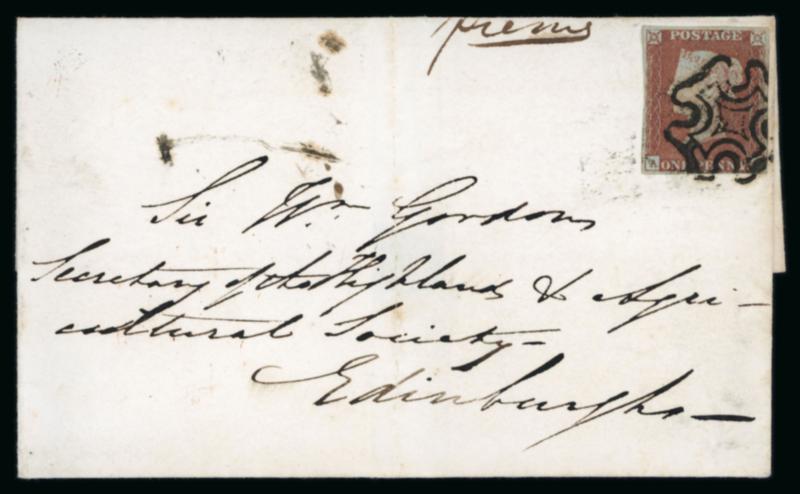 POSTAGE
ONE PENNY
Sir Wm Gordon
Secretary of the Highlands & Agri-
cultural Society-
Edinburgh-